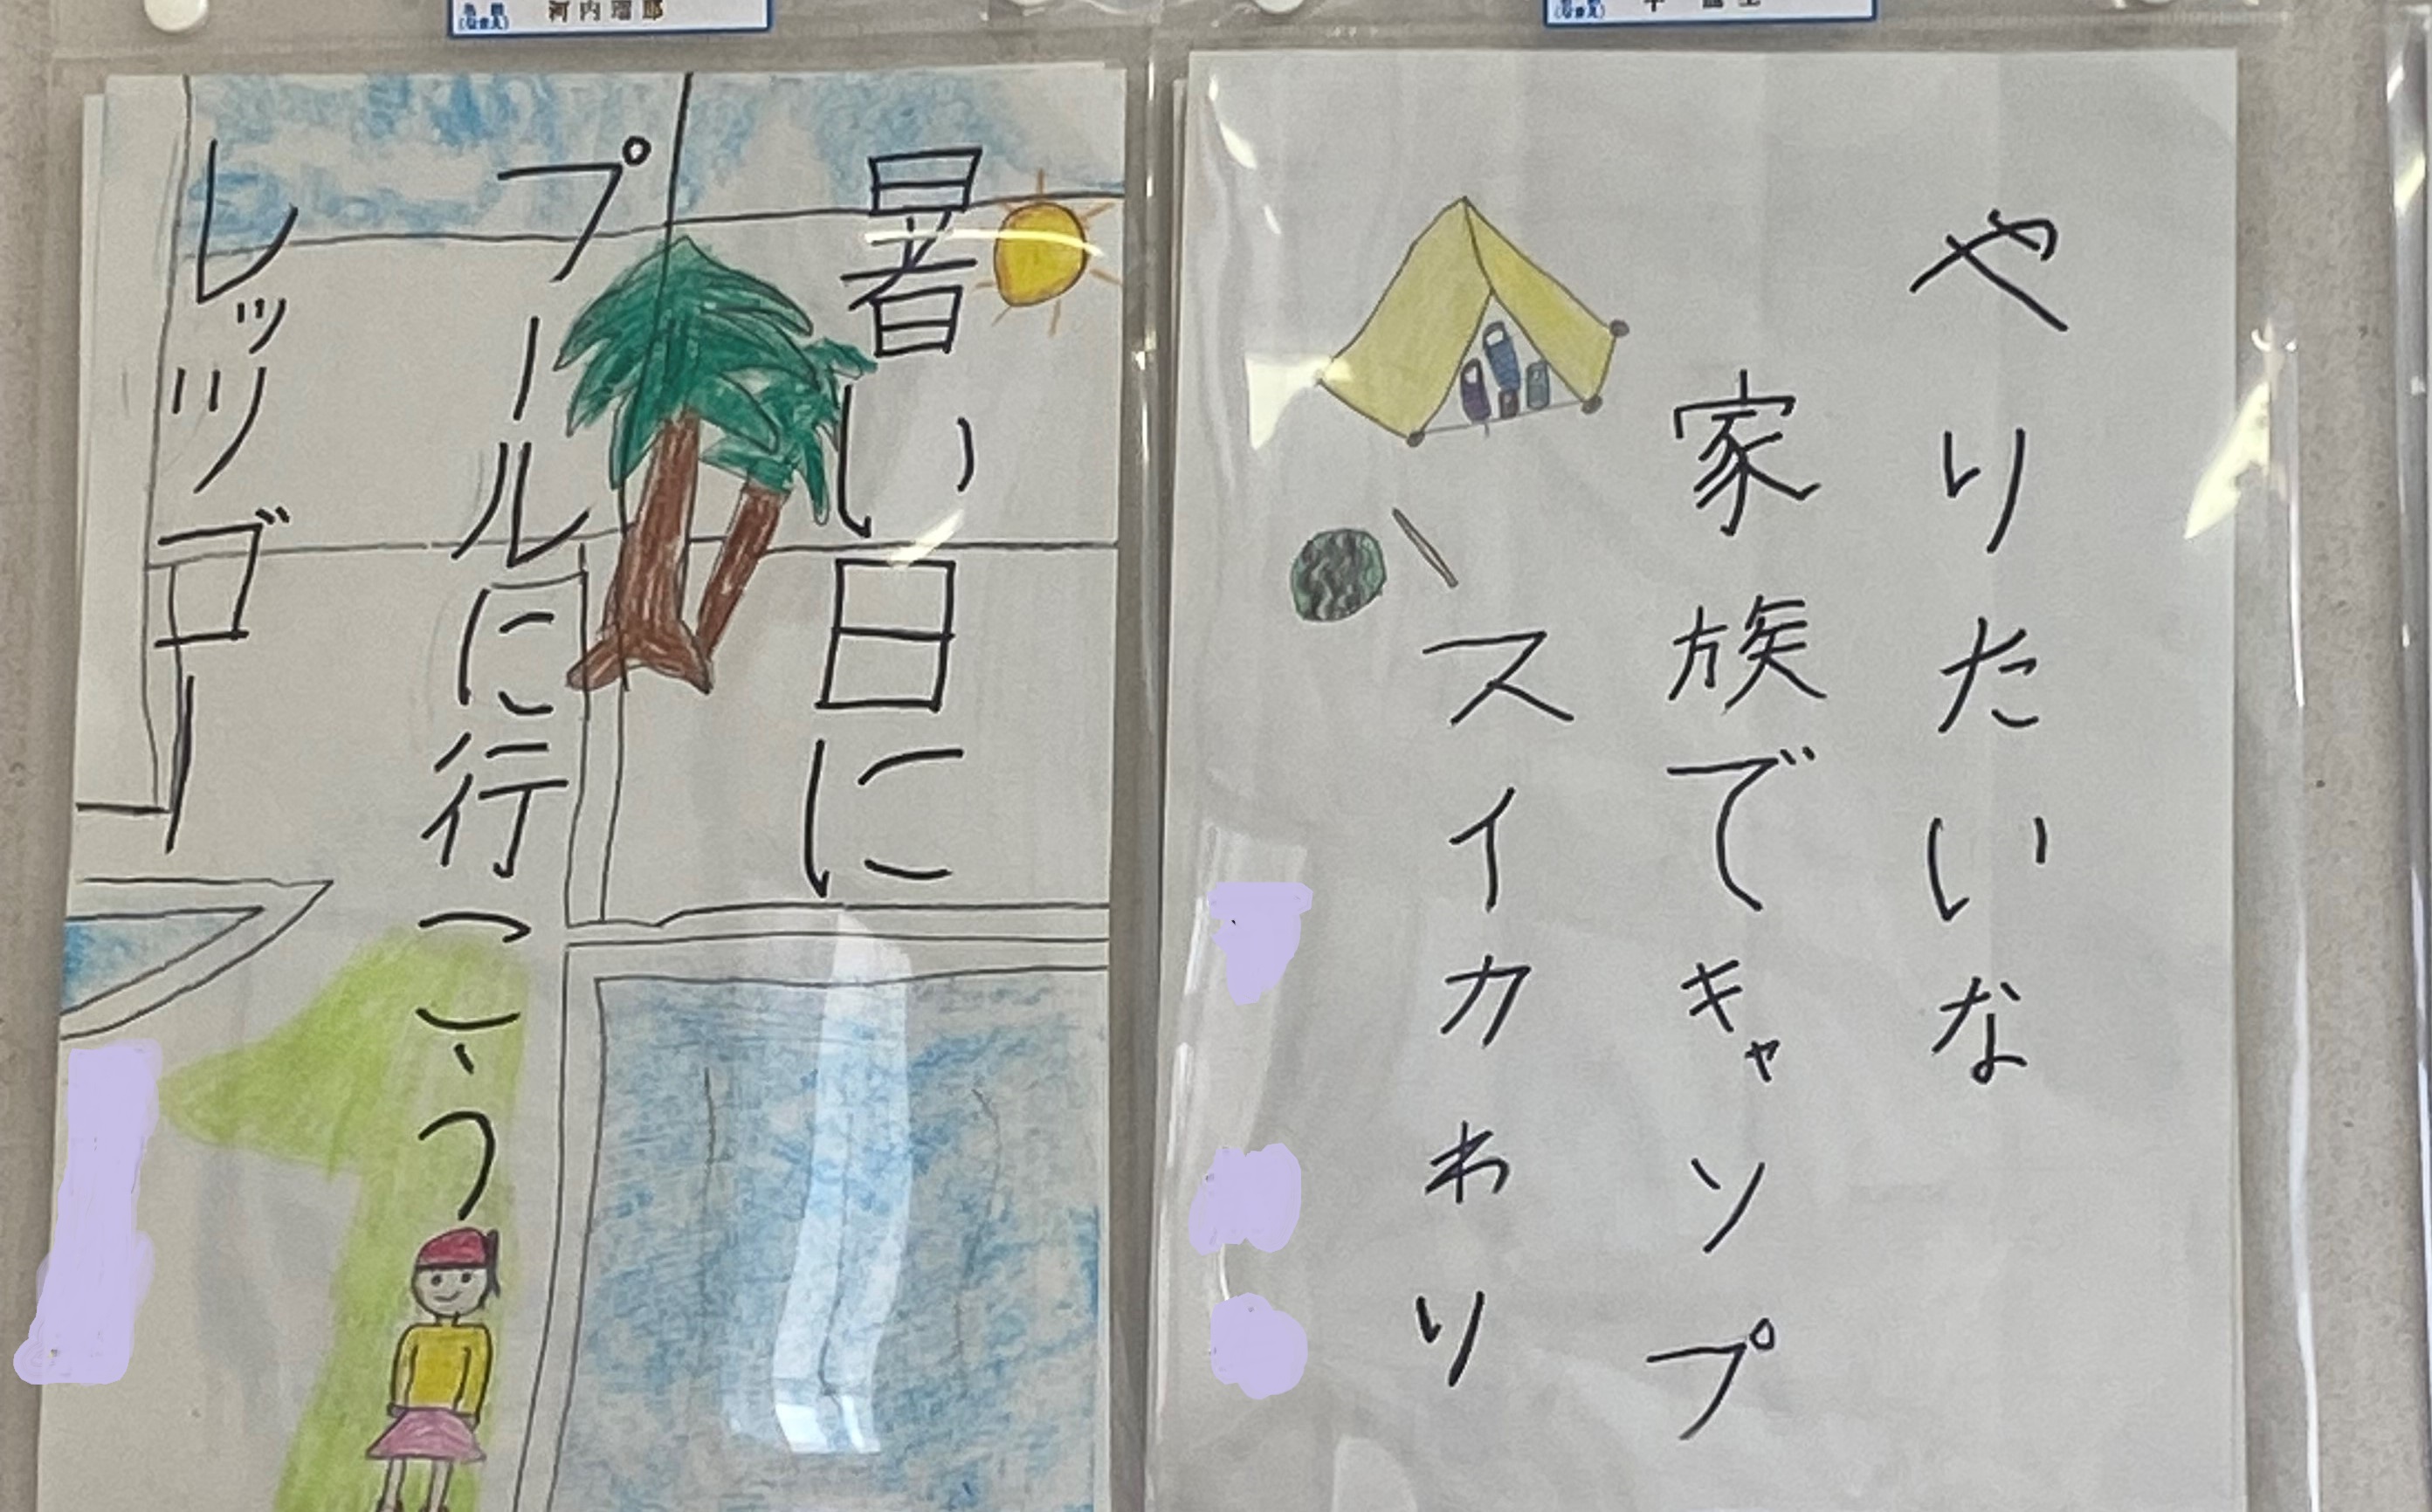 やりたいな
家族でキャンプ
スイカわり
暑い日に
プールに行こう
レッツゴー